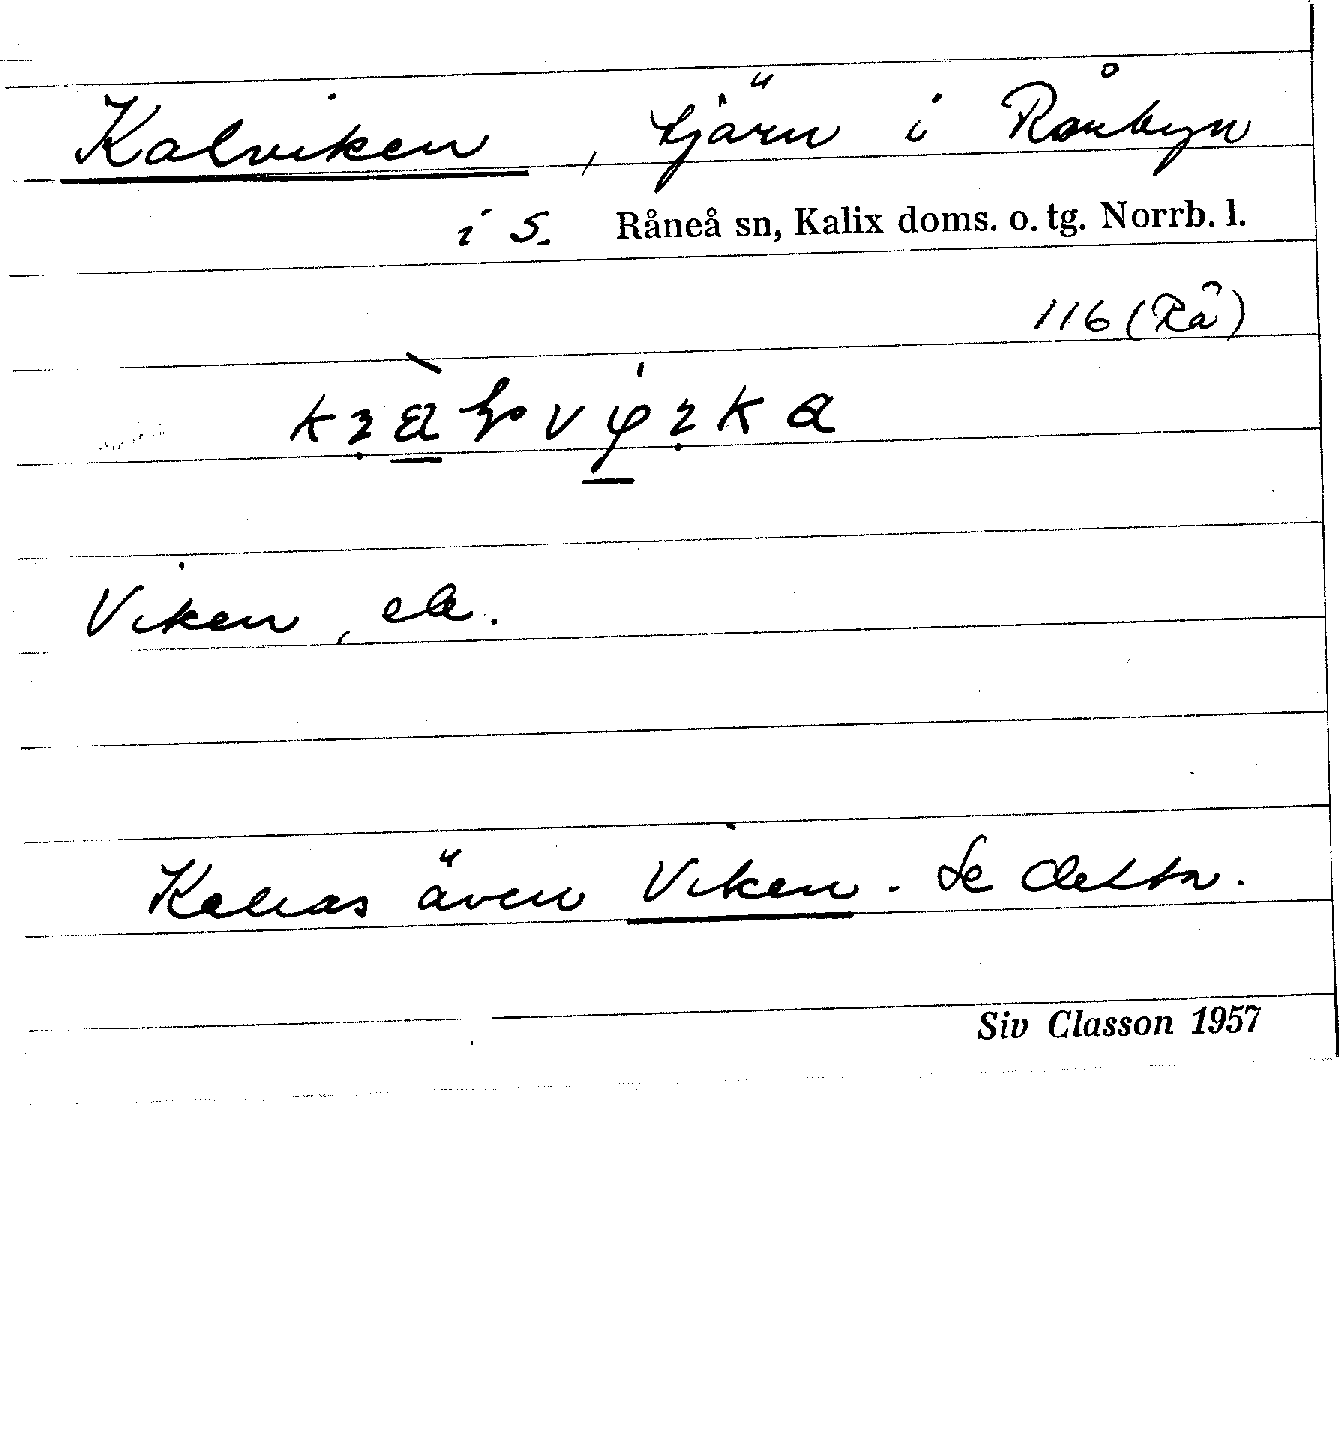 Kalviken, tjärn i Rånbyn
i S. Råneå sn, Kalix doms. o. tg. Norrb. l.
116 (Rå)
Viken,
Kallas även Viken. Se detta.
Siv Classon 1957